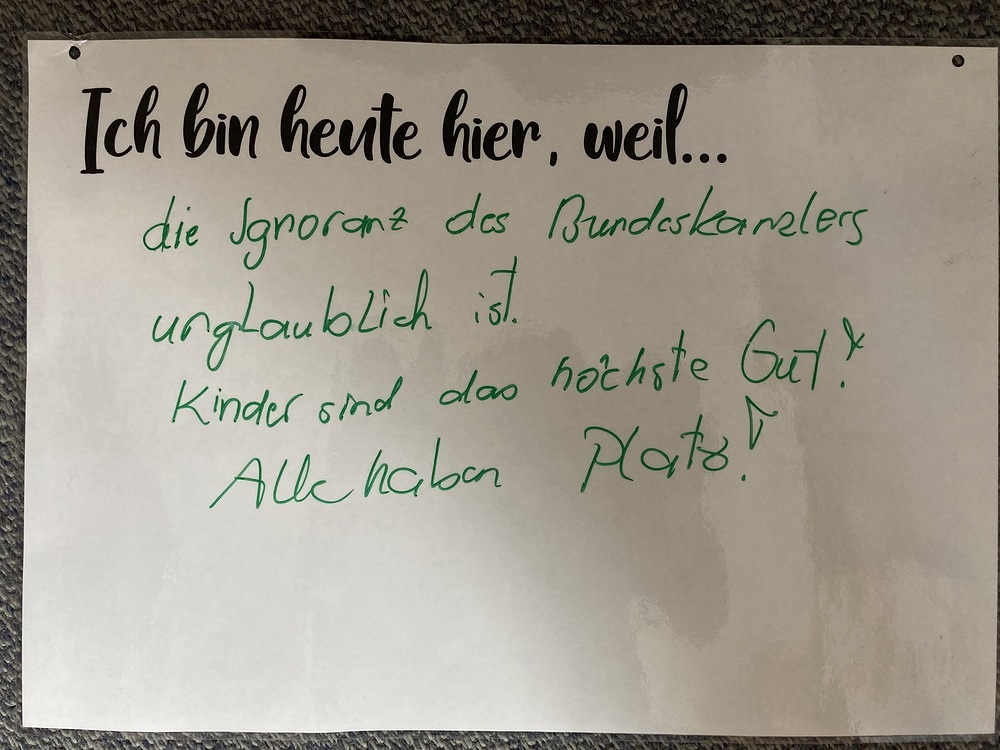 Ich bin heute hier, weil...
die Ignoranz des Bundeskanzlers
unglaublich ist.
Kinder sind das höchste Gut!
Alle haben Platz!